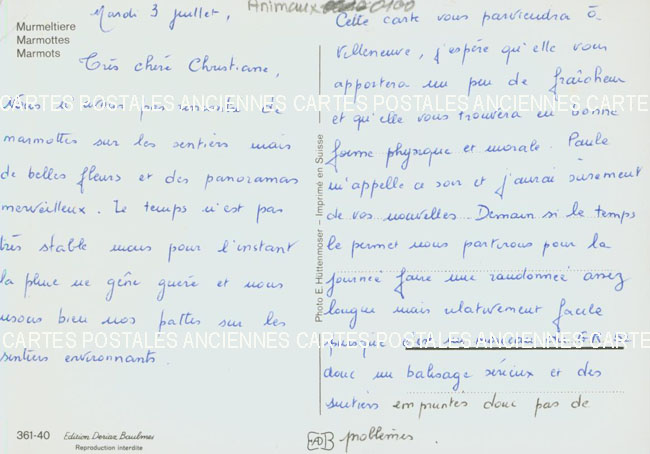 Animaux 0100
Murmeltiere
Marmottes
Marmots
Mardi 3 juillet,
Très chère Christiane,
Nous n'avons pas rencontré de
marmottes sur les sentiers mais
de belles fleurs et des panoramas
merveilleux. Le temps n'est pas
très stable mais pour l'instant
la pluie ne gêne guère et nous
usons bien nos pattes sur les
sentiers environnants.
361-40 Edition Deriaz Baulmes
Reproduction interdite
Photo E. Hüttenmoser – Imprimé en Suisse
Cette carte vous parviendra à
Villeneuve, j'espère qu'elle vous
apportera un peu de fraîcheur
et qu'elle vous trouvera en bonne
forme physique et morale. Paule
m'appelle ce soir et j'aurai sûrement
de vos nouvelles. Demain si le temps
le permet nous partirons pour la
journée faire une randonnée assez
longue mais relativement facile
puisque c'est un morceau de GR
donc un balisage sérieux et des
sentiers empruntés donc pas de
problèmes.
CARTES POSTALES ANCIENNES CARTES POSTALES ANCIENNES CARTE
CARTES POSTALES ANCIENNES CARTES POSTALES ANCIENNES CARTE